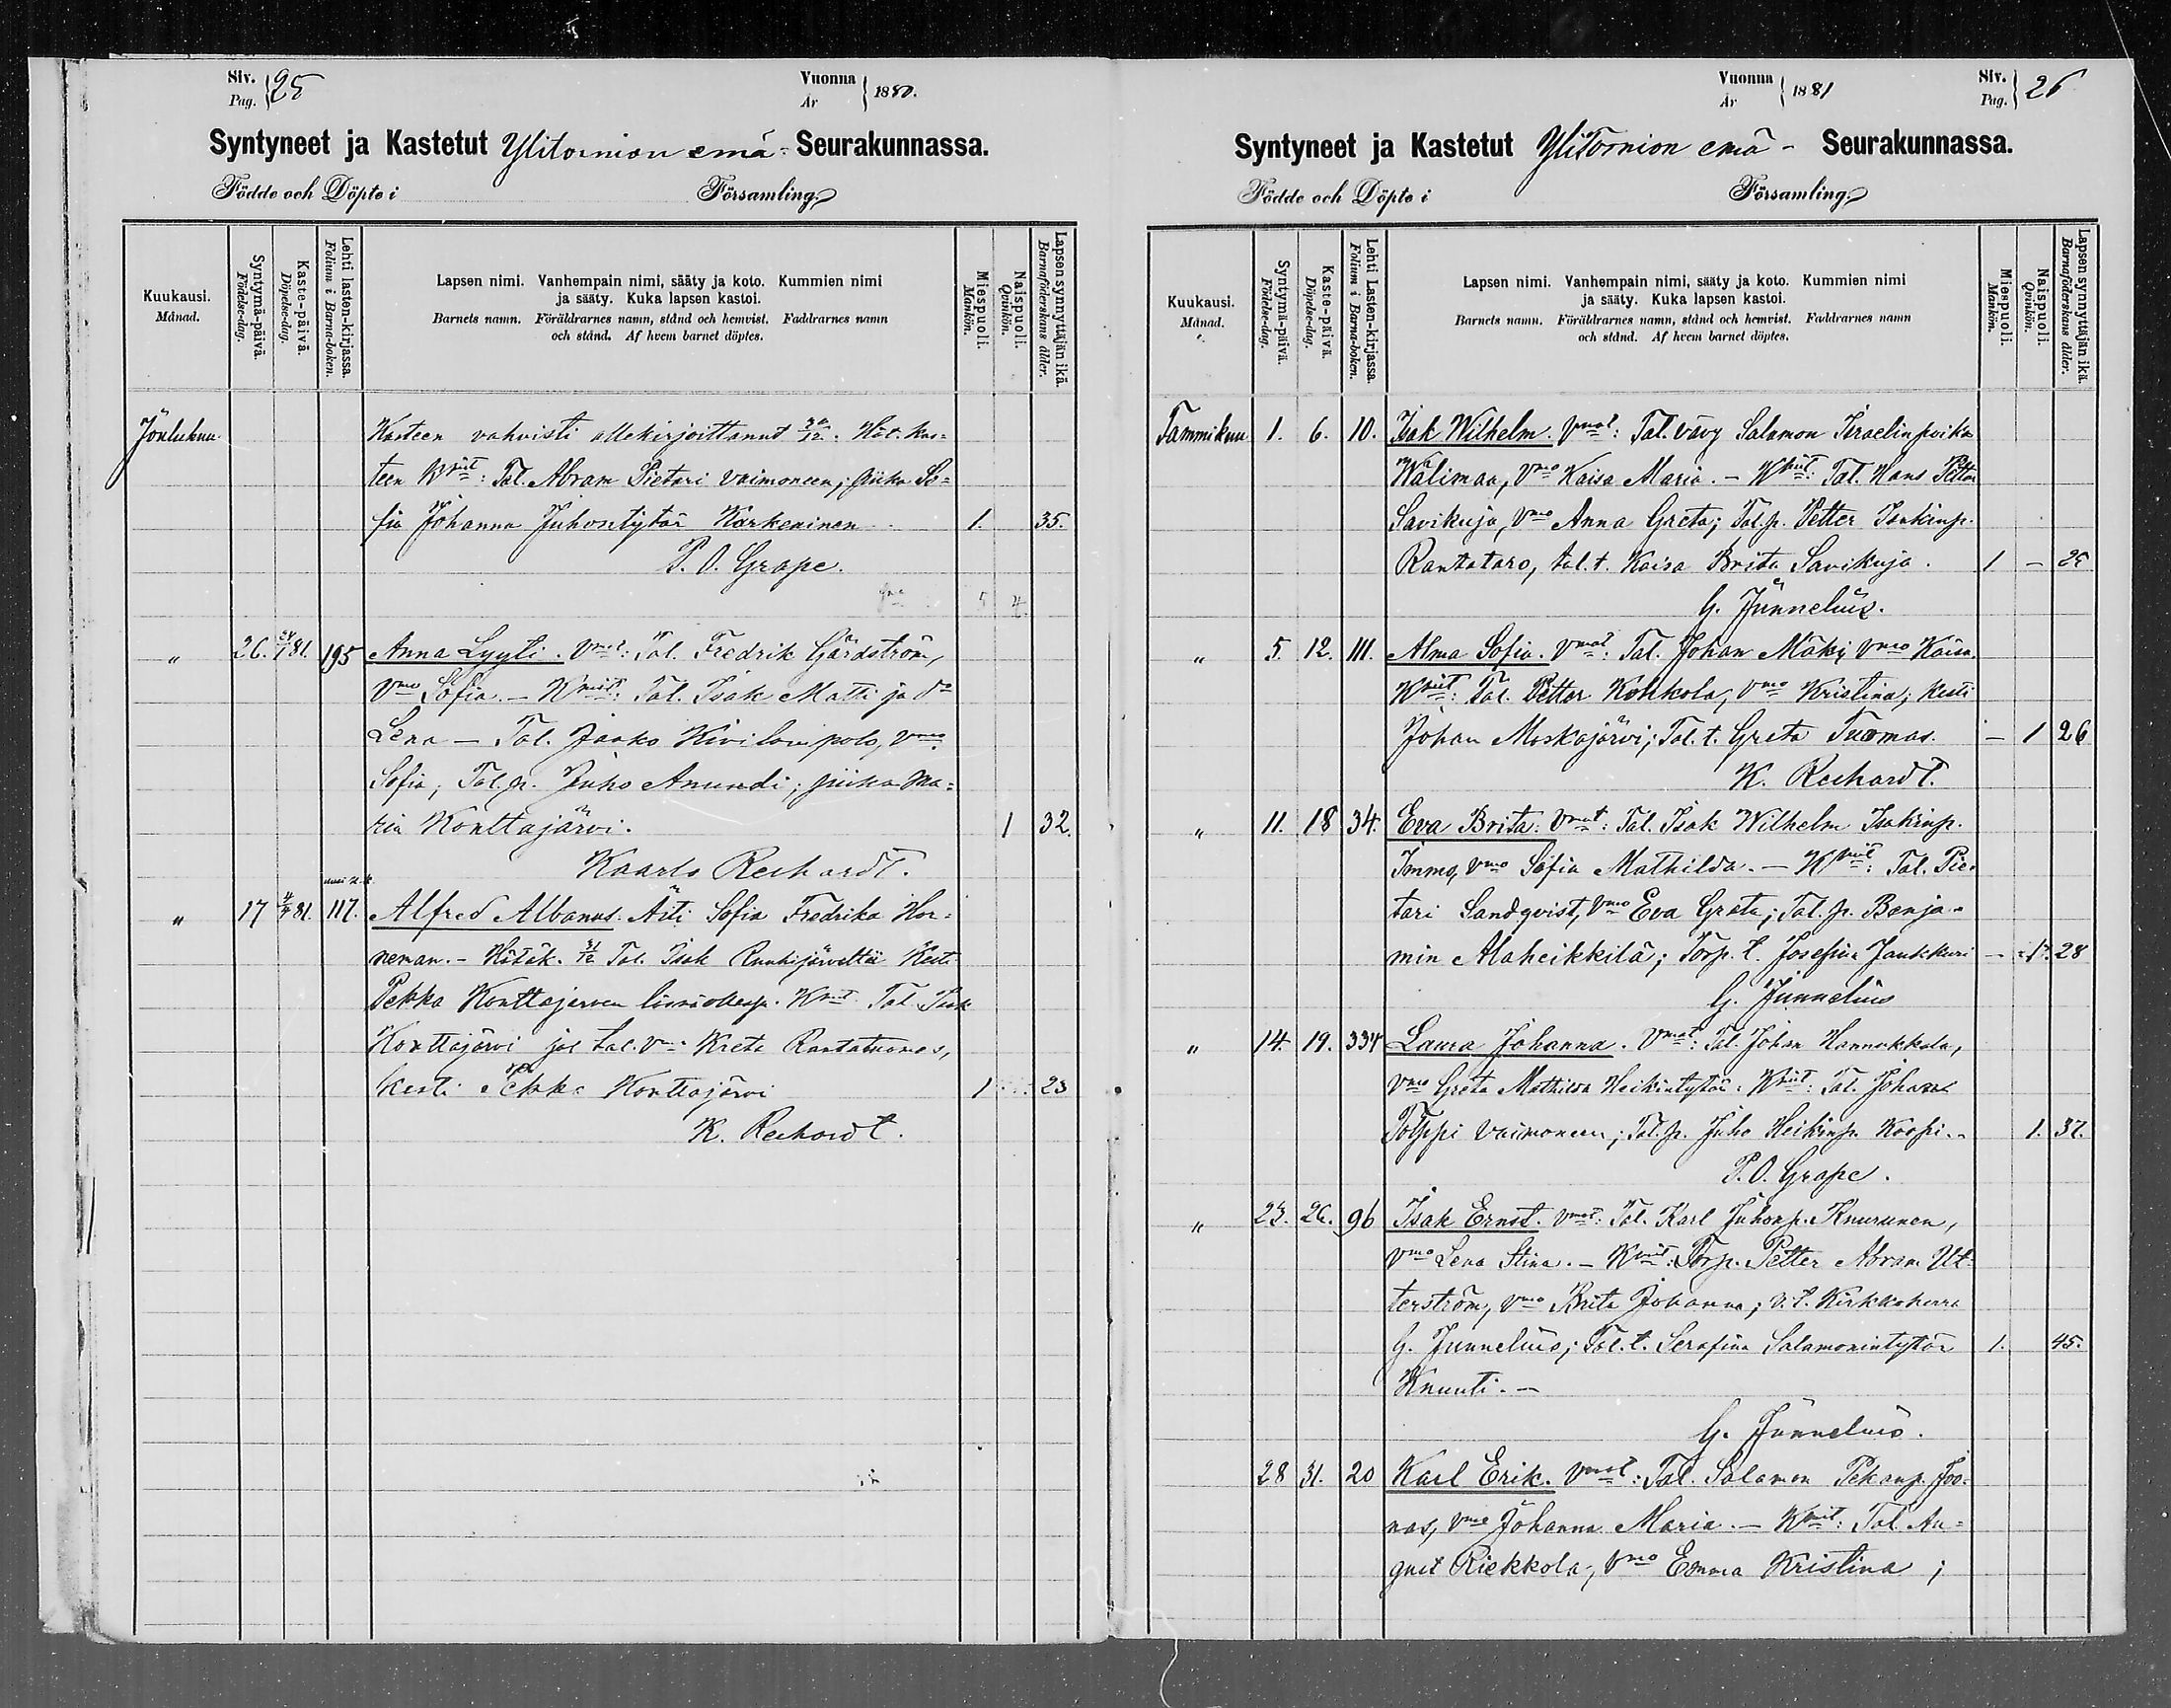 Siv. Pag. 25
Vuonna År 1880.
Syntyneet ja Kastetut Ylitornion emä- Seurakunnassa.
Födde och Döpte i Församling
Kuukausi. Månad.
Syntymä-päivä. Födelse-dag.
Kaste-päivä. Döpelse-dag.
Lehti lasten-kirjassa. Folium i Barna-boken.
Lapsen nimi. Vanhempain nimi, sääty ja koto. Kummien nimi
ja sääty. Kuka lapsen kastoi.
Barnets namn. Föräldrarnes namn, stånd och hemvist. Faddrarnes namn
och stånd. Af hvem barnet döptes.
Miespuoli. Mankön.
Naispuoli. Qvinkön.
Lapsen synnyttäjän ikä. Barnaföderskans ålder.
Joulukuu Kasteen vahvisti allekirjoittanut 20/12. Hät. kas=
teen Kmit: Tal. Abram Pietari vaimoneen; piika So=
fia Johanna Juhontytär Karkeninen 1. 35.
P. O. Grape.
" 26. 24/1 81. 195 Anna Lyyti. Vmat: Tal. Fredrik Gärdström,
Vmo Sofia. - Kmit: Tal. Isak Matti ja do
Lena - Tal. Jaako Kivilompolo, Vmo
Sofia; Tal. p. Juho Anundi; piika Ma=
ria Konttajärvi. 1 32.
Kaarlo Rechardt.
" 17 81. 117. Alfred Albanus. Äiti Sofia Fredrika Hor=
neman. - Hätäk. 31/12 Tal. Isak Ruukijärveltä Kesti
Pekka Konttajerven Kmit Tal. Isak
Konttajärvi ja tal. vmo Kreta Rantatuomas,
Kesti Pekka Konttajärvi 1 23
K. Rechardt.
Vuonna År 1881
Siv. Pag. 26
Syntyneet ja Kastetut Ylitornion emä- Seurakunnassa.
Födde och Döpte i Församling
Kuukausi. Månad.
Syntymä-päivä. Födelse-dag.
Kaste-päivä. Döpelse-dag.
Lehti Lasten-kirjassa. Folium i Barna-boken.
Lapsen nimi. Vanhempain nimi, sääty ja koto. Kummien nimi
ja sääty. Kuka lapsen kastoi.
Barnets namn. Föräldrarnes namn, stånd och hemvist. Faddrarnes namn
och stånd. Af hvem barnet döptes.
Miespuoli. Mankön.
Naispuoli. Qvinkön.
Lapsen synnyttäjän ikä. Barnaföderskans ålder.
Tammikuu 1. 6. 10. Isak Wilhelm. Vmat: Tal. vävy Salamon Israelinpoika
Wälimaa, Vmo Kaisa Maria. - Kmit: Tal. Hans Petter
Savikuja, Vmo Anna Greta; Tal. p. Petter Isakinp.
Rantataro, tal. t. Kaisa Brita Savikuja. 1 - 25
G. Junnelius.
" 5. 12. 111. Alma Sofia. Vmat: Tal. Johan Mäki, Vmo Kaisa.
Kmit: Tal. Petter Kohkola, Vmo Kristina; Kesti
Johan Moskajärvi; Tal. t. Greta Tuomas. - 1 26
K. Rechardt.
" 11. 18 34. Eva Brita: Vmat: Tal. Isak Wilhelm Isakinp.
Immo, Vmo Sofia Mathilda. - Kmit: Tal. Pie=
tari Sandqvist, Vmo Eva Greta; Tal. p. Benja=
min Alaheikkilä; Torp. t. Josefina Jaukkuri - 1. 28
G. Junnelius
" 14. 19. 334 Laura Johanna. Vmat: Tal. Johan Hannukkala,
Vmo Greta Mathilda Heikintytär. Kmit: Tal. Johan
Tolppi vaimoneen; Tal. p. Juho Heikinp. Koopi. 1. 37.
P. O. Grape.
" 23. 26. 96 Isak Ernst. Vmat: Tal. Karl Juhonp. Knurunen,
Vmo Lena Stina. - Kmit: Torp. Petter Abram Ut=
terström, Vmo Brita Johanna; v. t. Kirkkoherra
G. Junnelius; Tal. t. Serafina Salamonintytär 1. 45.
Knuuti. -
G. Junnelius.
28 31. 20 Karl Erik. Vmat: Tal. Salamon Pekanp. Joo=
nas, Vmo Johanna Maria. - Kmit: Tal. Au=
gust Riekkola, Vmo Emma Kristina;